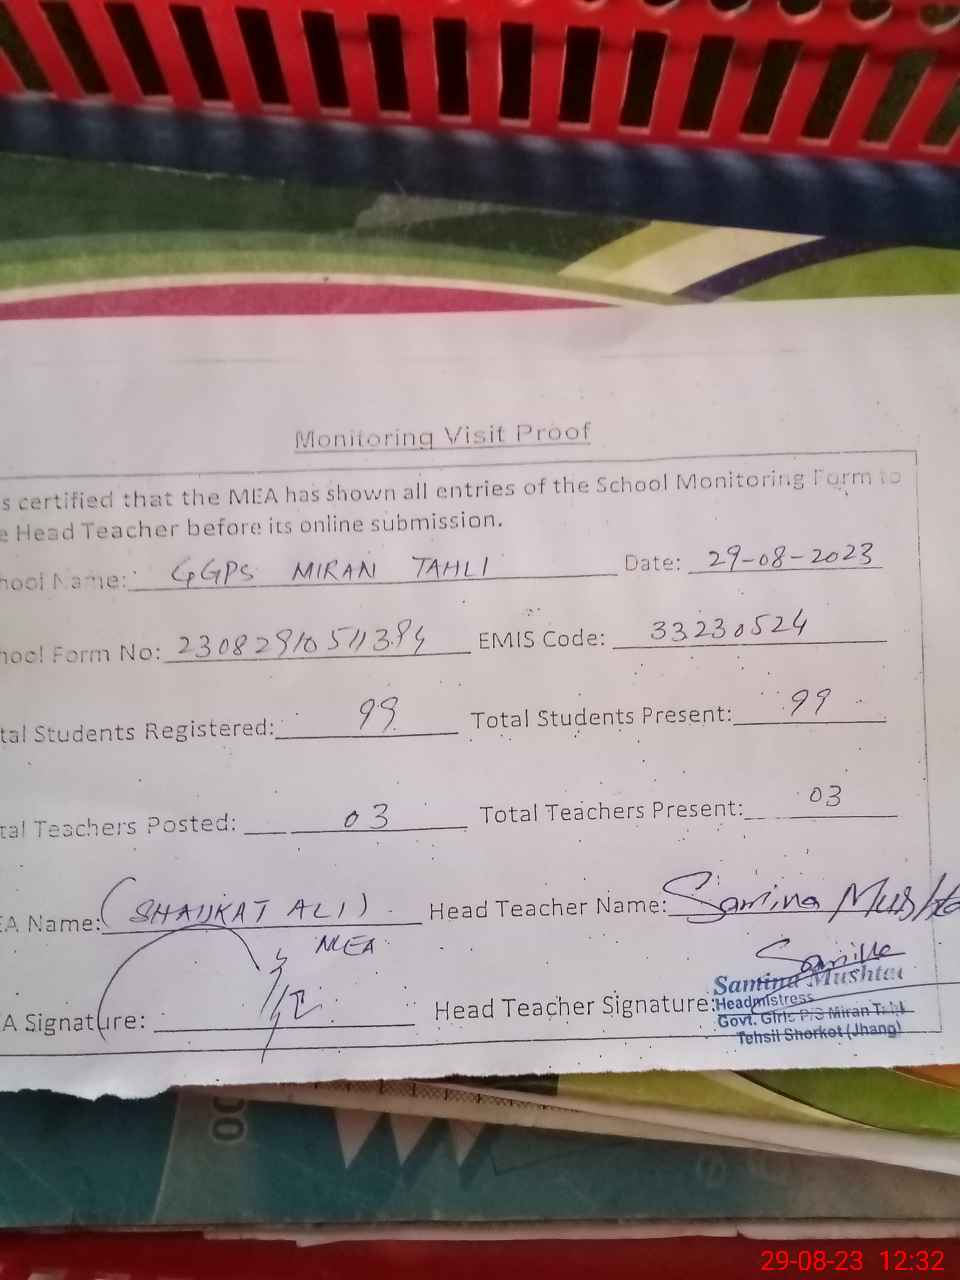 Monitoring Visit Proof
s certified that the MEA has shown all entries of the School Monitoring Form to
e Head Teacher before its online submission.
hool Name: GGPS MIRAN TAHLI Date: 29-08-2023
hool Form No: EMIS Code: 33230524
tal Students Registered: 99 Total Students Present: 99
tal Teachers Posted: 03 Total Teachers Present: 03
EA Name: (SHAUKAT ALI) Head Teacher Name: Samina Mushta
MEA
A Signature: Head Teacher Signature:
Samina Mushtaq
Headmistress
Govt. Girls P/S Miran Tahli
Tehsil Shorkot (Jhang)
29-08-23 12:32